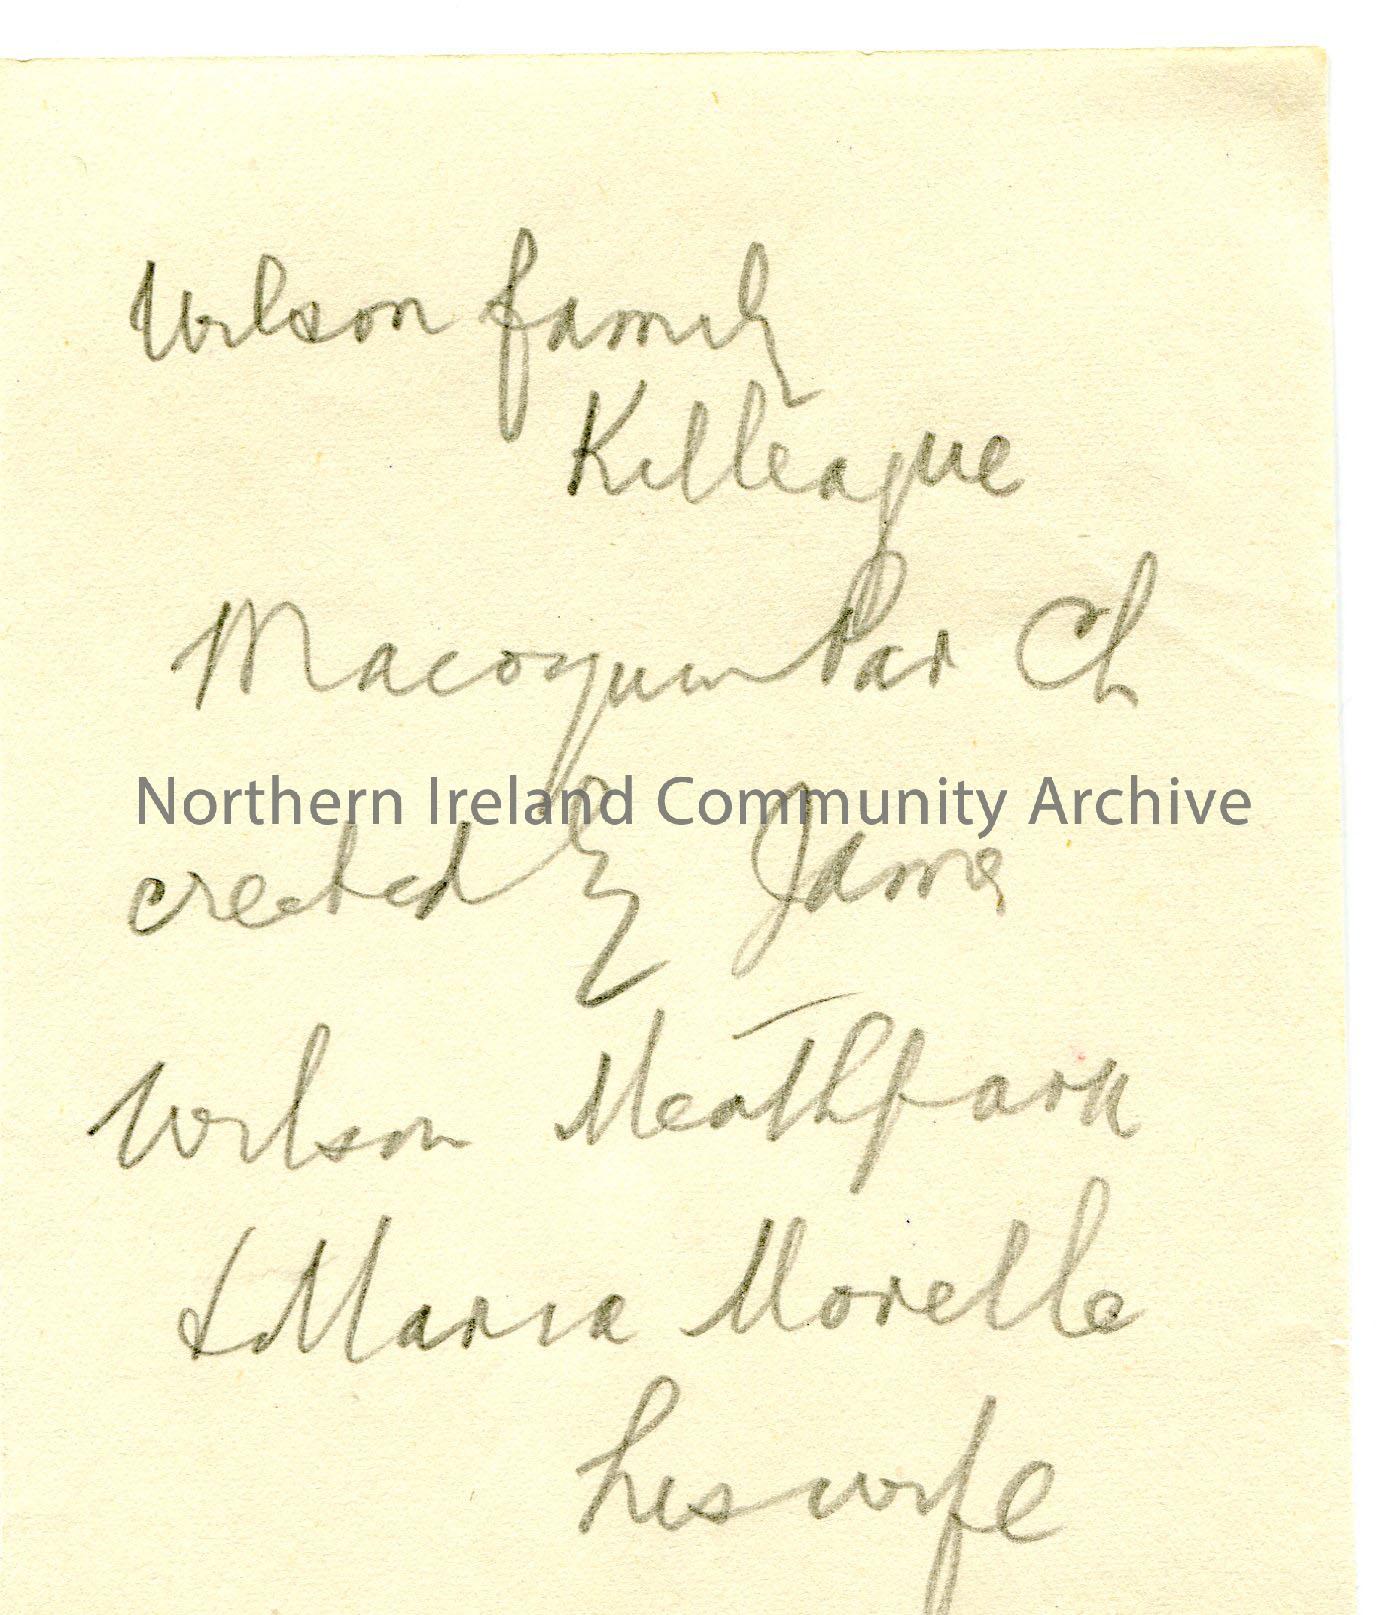 Wilson family
Killeague
Macosquin Par Ch
Northern Ireland Community Archive
erected by James
Wilson Meathpark
& Maria Morelle
his wife